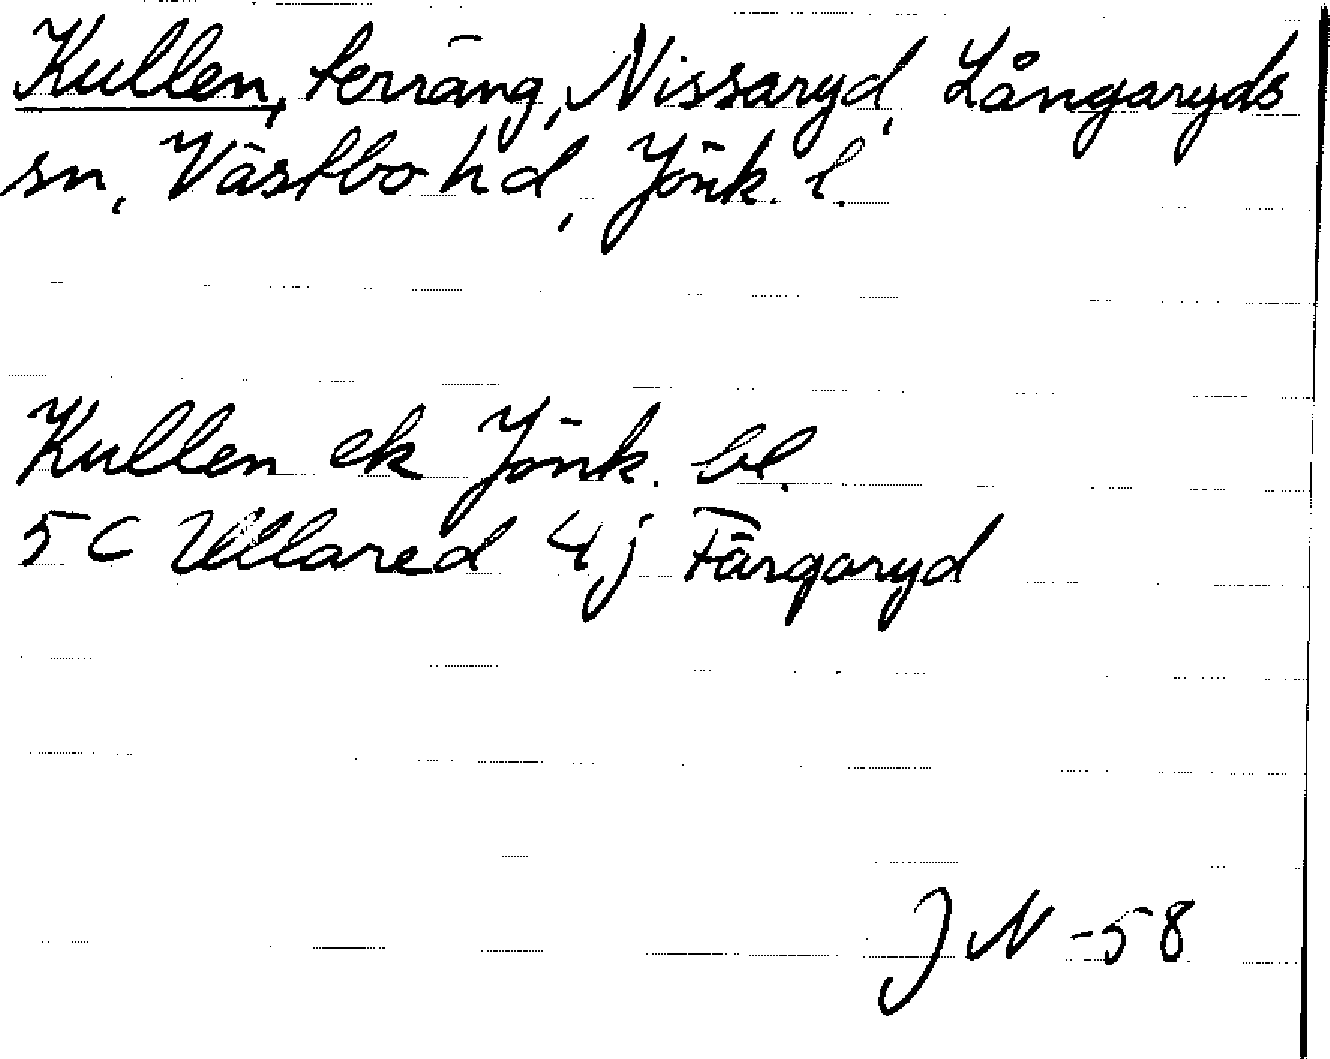 Kullen, terräng, Nissaryd, Långaryds
sn, Västbo hd, Jönk. l.
Kullen ek Jönk. bl.
5C Ullared 4j Färgaryd
JN -58